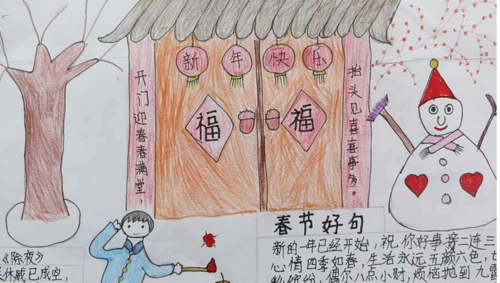 新年快乐
开门迎春春满堂，
抬头见喜喜事多。
福福
春节好句
新的一年已经开始，祝你好事接二连三
心情四季如春，生活永远五颜六色，七
缤纷，偶尔八点小财，烦恼抛到九霄
《除夜》
休戚已成空，